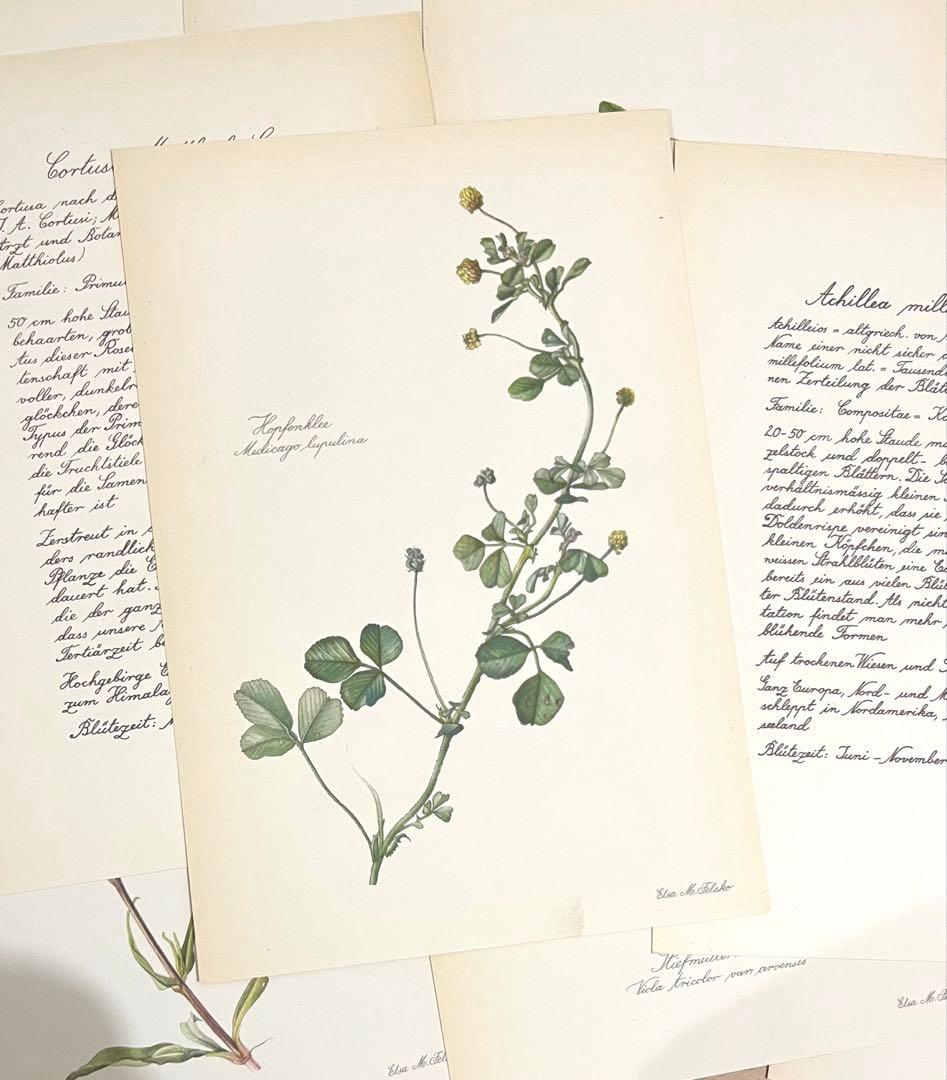 Cortusa
Cortusa nach d
J. A. Cortusi; M
Arzt und Botan
Matthiolus)
Familie: Primu
50 cm hohe Stau
behaarten, grob
Aus dieser Roset
tenschaft mit
voller, dunkelr
glöckchen, dere
Typus der Prim
rend die Glöck
die Fruchtstiele
für die Samen
hafter ist
Zerstreut in
ders randlich
Pflanze die E
dauert hat.
die der ganz
dass unsere
Tertiärzeit be
Hochgebirge E
zum Himala
Blütezeit:
Hopfenklee
Medicago lupulina
Elsa M. Felsko
Achillea mill
Achilleios = altgriech. von
Name einer nicht sicher
millefolium lat. = Tausend
nen Zerteilung der Blät
Familie: Compositae = Ko
20-50 cm hohe Staude mi
zelstock und doppelt-
spaltigen Blättern. Die
verhältnismässig kleinen
dadurch erhöht, dass sie
Doldenrispe vereinigt sin
kleinen Köpfchen, die m
weissen Strahlblüten eine
bereits ein aus vielen Blü
ter Blütenstand. Als nicht
tation findet man mehr
blühende Formen
Auf trockenen Wiesen und
Ganz Europa, Nord- und
schleppt in Nordamerika,
seeland
Blütezeit: Juni - November
Viola tricolor var arvensis
Elsa M. Fe
Elsa M. Fel